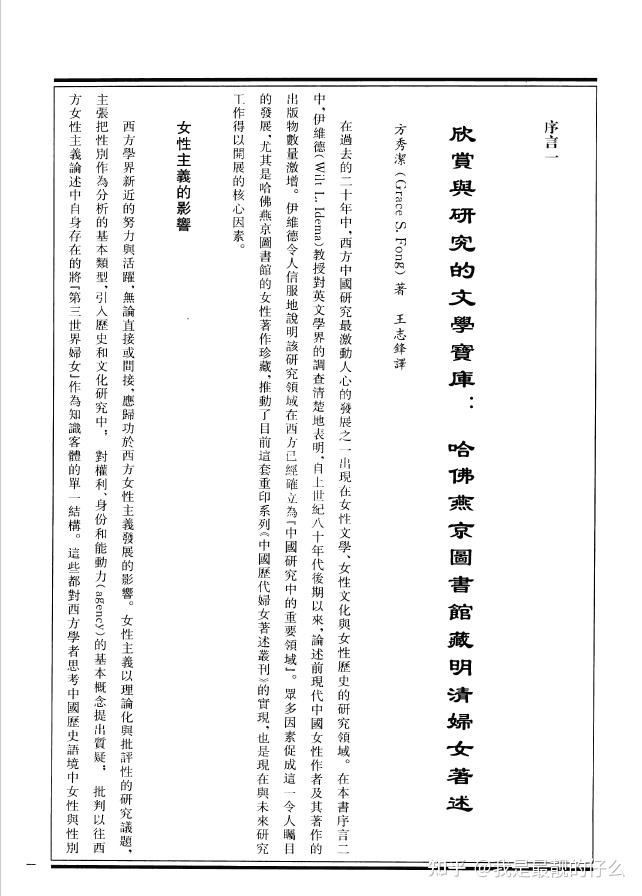 序言一
欣賞與研究的文學寶庫： 哈佛燕京圖書館藏明清婦女著述
方秀潔（Grace S. Fong）著 王志鋒譯
在過去的二十年中，西方中國研究最激動人心的發展之一出現在女性文學、女性文化與女性歷史的研究領域。在本書序言二
中，伊維德（Wilt L. Idema）教授對英文學界的調查清楚地表明，自上世紀八十年代後期以來，論述前現代中國女性作者及其著作的
出版物數量激增。伊維德令人信服地說明該研究領域在西方已經確立為『中國研究中的重要領域』。眾多因素促成這一令人矚目
的發展，尤其是哈佛燕京圖書館的女性著作珍藏，推動了目前這套重印系列《中國歷代婦女著述叢刊》的實現，也是現在與未來研究
工作得以開展的核心因素。
女性主義的影響
西方學界新近的努力與活躍，無論直接或間接，應歸功於西方女性主義發展的影響。女性主義以理論化與批評性的研究議題，
主張把性別作為分析的基本類型，引入歷史和文化研究中； 對權利、身份和能動力（agency）的基本概念提出質疑； 批判以往西
方女性主義論述中自身存在的將『第三世界婦女』作為知識客體的單一結構。這些都對西方學者思考中國歷史語境中女性與性別
一
知乎 @我是最靓的仔么